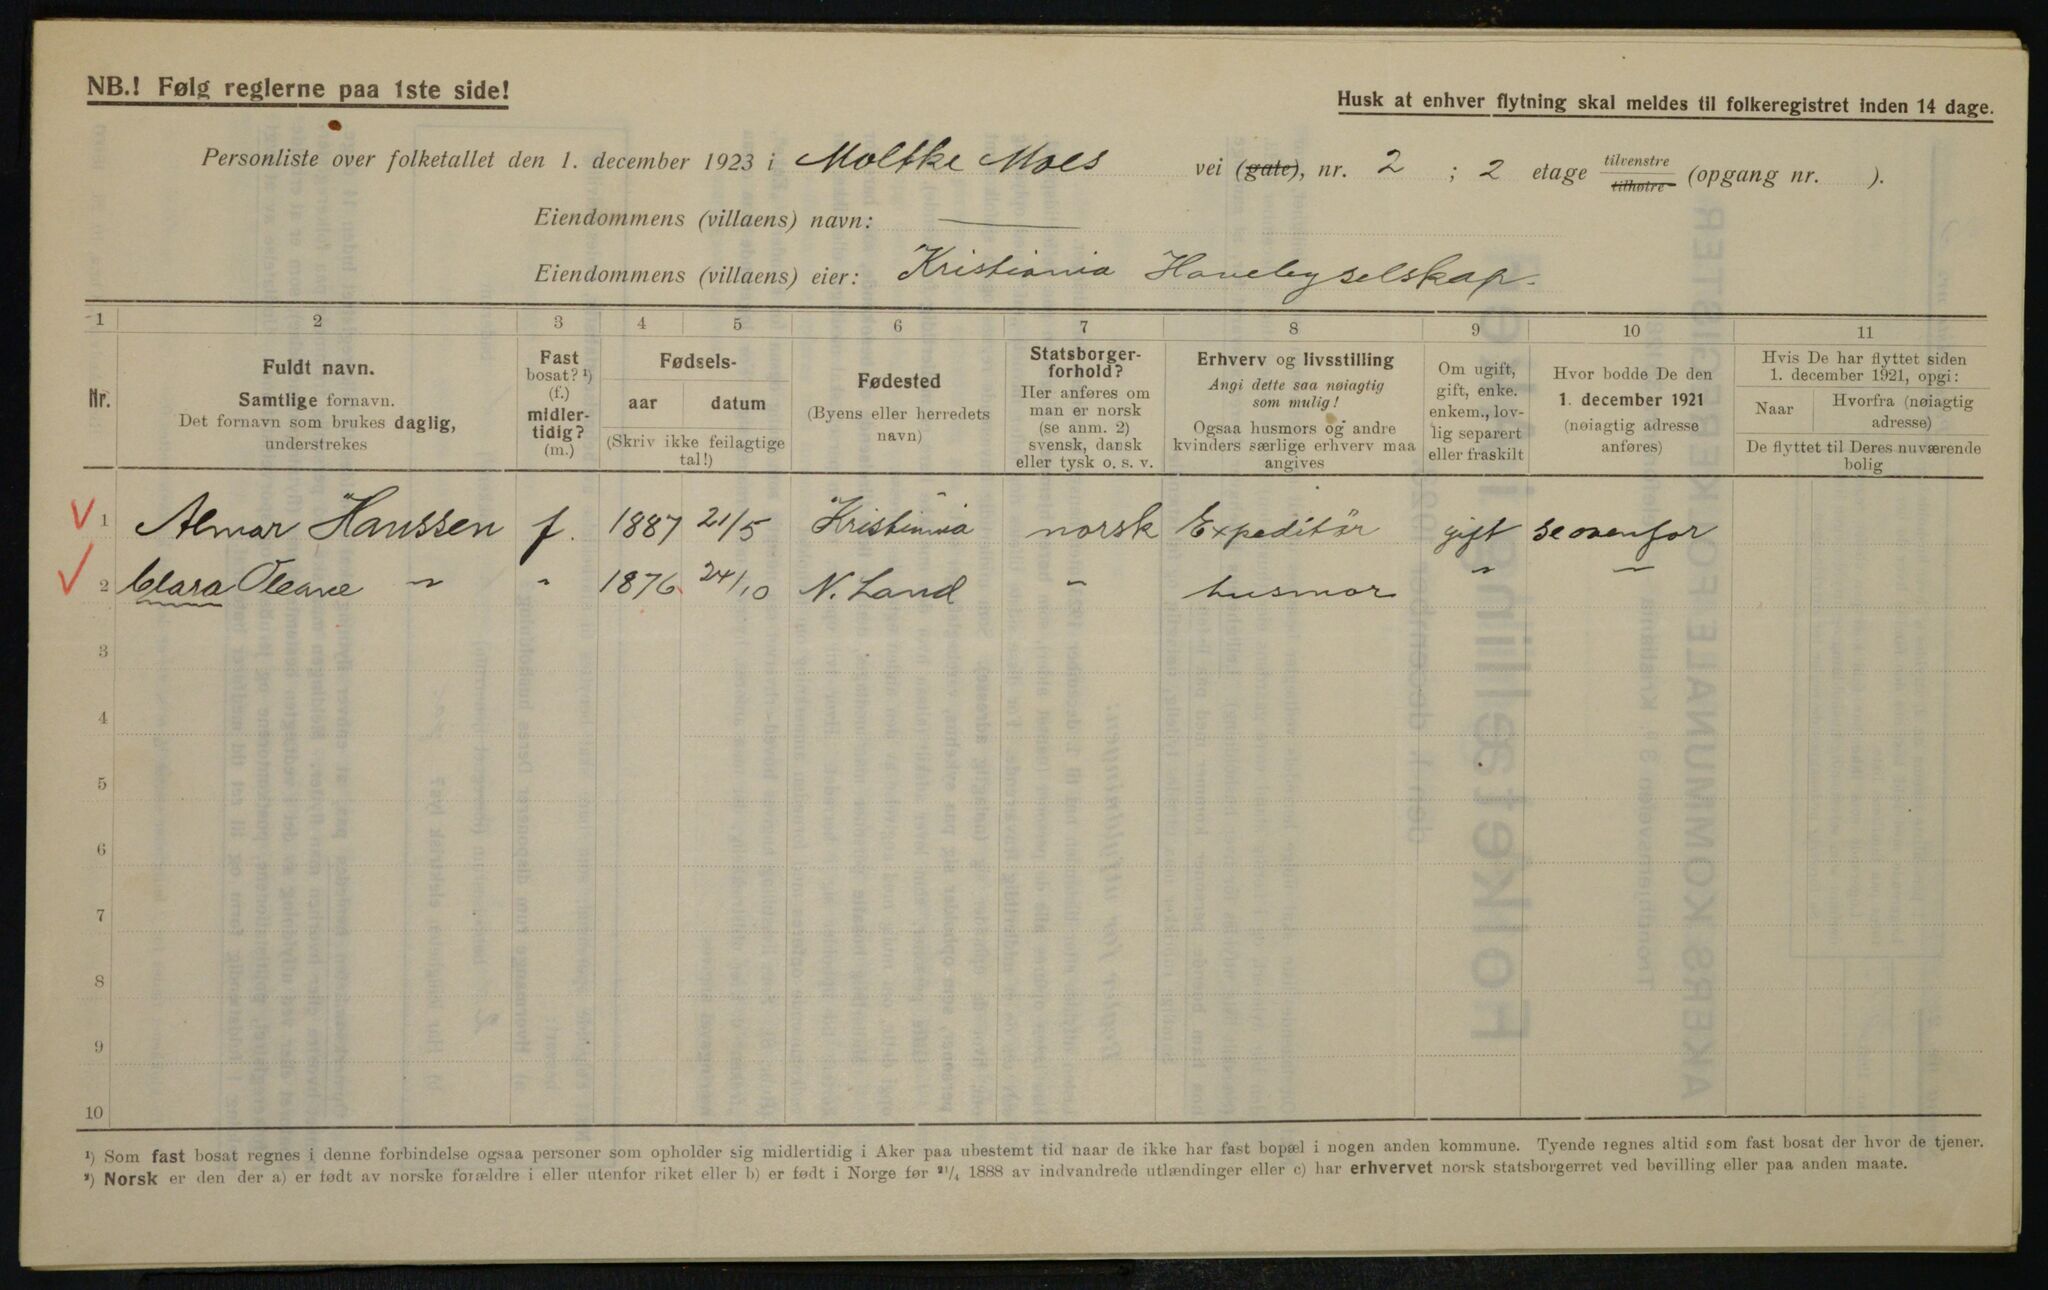 NB.! Følg reglerne paa 1ste side!
Husk at enhver flytning skal meldes til folkeregistret inden 14 dage.
Personliste over folketallet den 1. december 1923 i Moltke Moes vei (gate), nr. 2 ; 2 etage tilvenstre tilhøire (opgang nr. ).
Eiendommens (villaens) navn: —
Eiendommens (villaens) eier: Kristiania Havebyselskap.
1 2 3 4 5 6 7 8 9 10 11
Nr.
Fuldt navn.
Samtlige fornavn.
Det fornavn som brukes daglig,
understrekes
Fast
bosat? ¹)
(f.)
midler-
tidig?
(m.)
Fødsels-
aar datum
(Skriv ikke feilagtige
tal!)
Fødested
(Byens eller herredets
navn)
Statsborger-
forhold?
Her anføres om
man er norsk
(se anm. 2)
svensk, dansk
eller tysk o. s. v.
Erhverv og livsstilling
Angi dette saa nøiagtig
som mulig!
Ogsaa husmors og andre
kvinders særlige erhverv maa
angives
Om ugift,
gift, enke.
enkem., lov-
lig separert
eller fraskilt
Hvor bodde De den
1. december 1921
(nøiagtig adresse
anføres)
Hvis De har flyttet siden
1. december 1921, opgi:
Naar
Hvorfra (nøiagtig
adresse)
De flyttet til Deres nuværende
bolig
1 Almar Hanssen f. 1887 21/5 Kristiania norsk Expeditør gift se ovenfor
2 Clara Oleane " " 1876 24/10 N. Land " husmor " "
3
4
5
6
7
8
9
10
¹) Som fast bosat regnes i denne forbindelse ogsaa personer som opholder sig midlertidig i Aker paa ubestemt tid naar de ikke har fast bopæl i nogen anden kommune. Tyende regnes altid som fast bosat der hvor de tjener.
²) Norsk er den der a) er født av norske forældre i eller utenfor riket eller b) er født i Norge før 21/4 1888 av indvandrede utlændinger eller c) har erhvervet norsk statsborgerret ved bevilling eller paa anden maate.